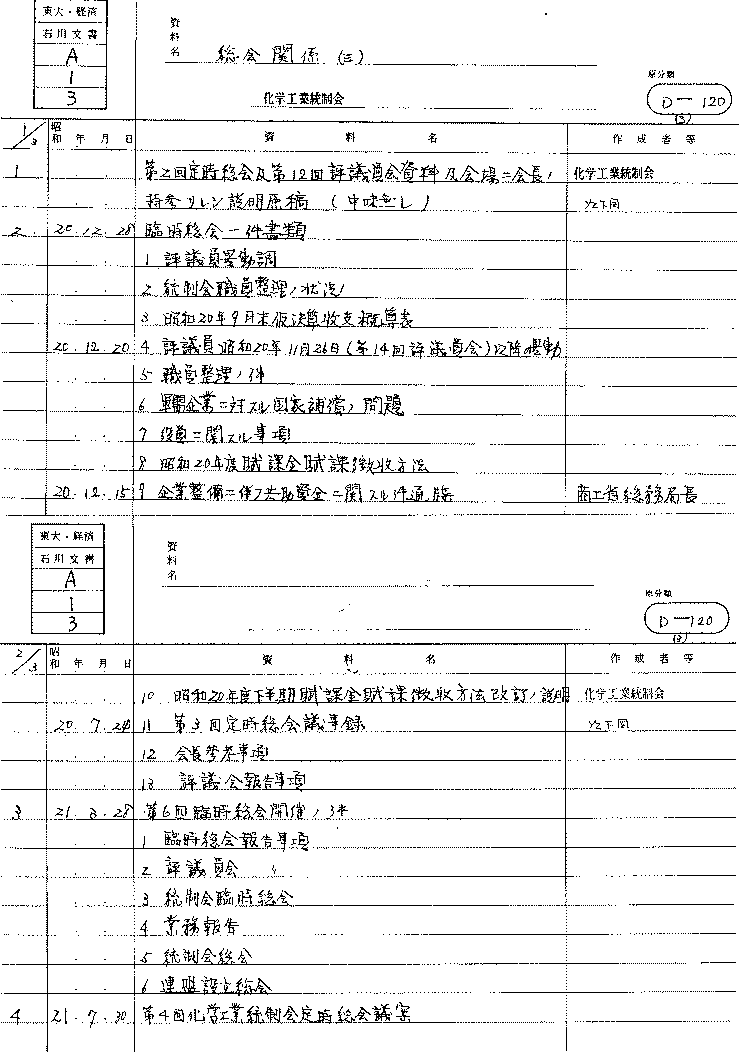 東大・経済
石川文書
A
1
3
資料名 総会関係 (三)
化学工業統制会
原分類
D-120
(3)
1/3 昭和 年 月 日 資料名 作成者等
1 第2回定時総会及第12回評議員会資料及会場ニ会長ノ 化学工業統制会
説明原稿 (中味無し) 以下同
2 20.12.28 臨時総会一件書類
1 評議員異動調
2 統制会職員整理ノ状況
3 昭和20年9月末仮決算収支概算表
20.12.20 4 評議員昭和20年11月26日(第14回評議員会)以降異動
5 職員整理ノ件
6 軍需企業ニ対スル国家補償ノ問題
7 役員ニ関スル事項
8 昭和20年度賦課金賦課徴収方法
20.12.15 9 企業整備ニ伴フ共助資金ニ関スル件通牒 商工省総務局長
東大・経済
石川文書
A
1
3
資料名
原分類
D-120
(3)
2/3 昭和 年 月 日 資料名 作成者等
10 昭和20年度下半期賦課金賦課徴収方法改訂ノ説明 化学工業統制会
20.7.24 11 第3回定時総会議事録 以下同
12 会長参考事項
13 評議会報告事項
3 21.3.28 第6回臨時総会開催ノ件
1 臨時総会報告事項
2 評議員会 〃
3 統制会臨時総会
4 業務報告
5 統制会総会
6 連盟設立総会
4 21.7.30 第4回化学工業統制会定時総会議案